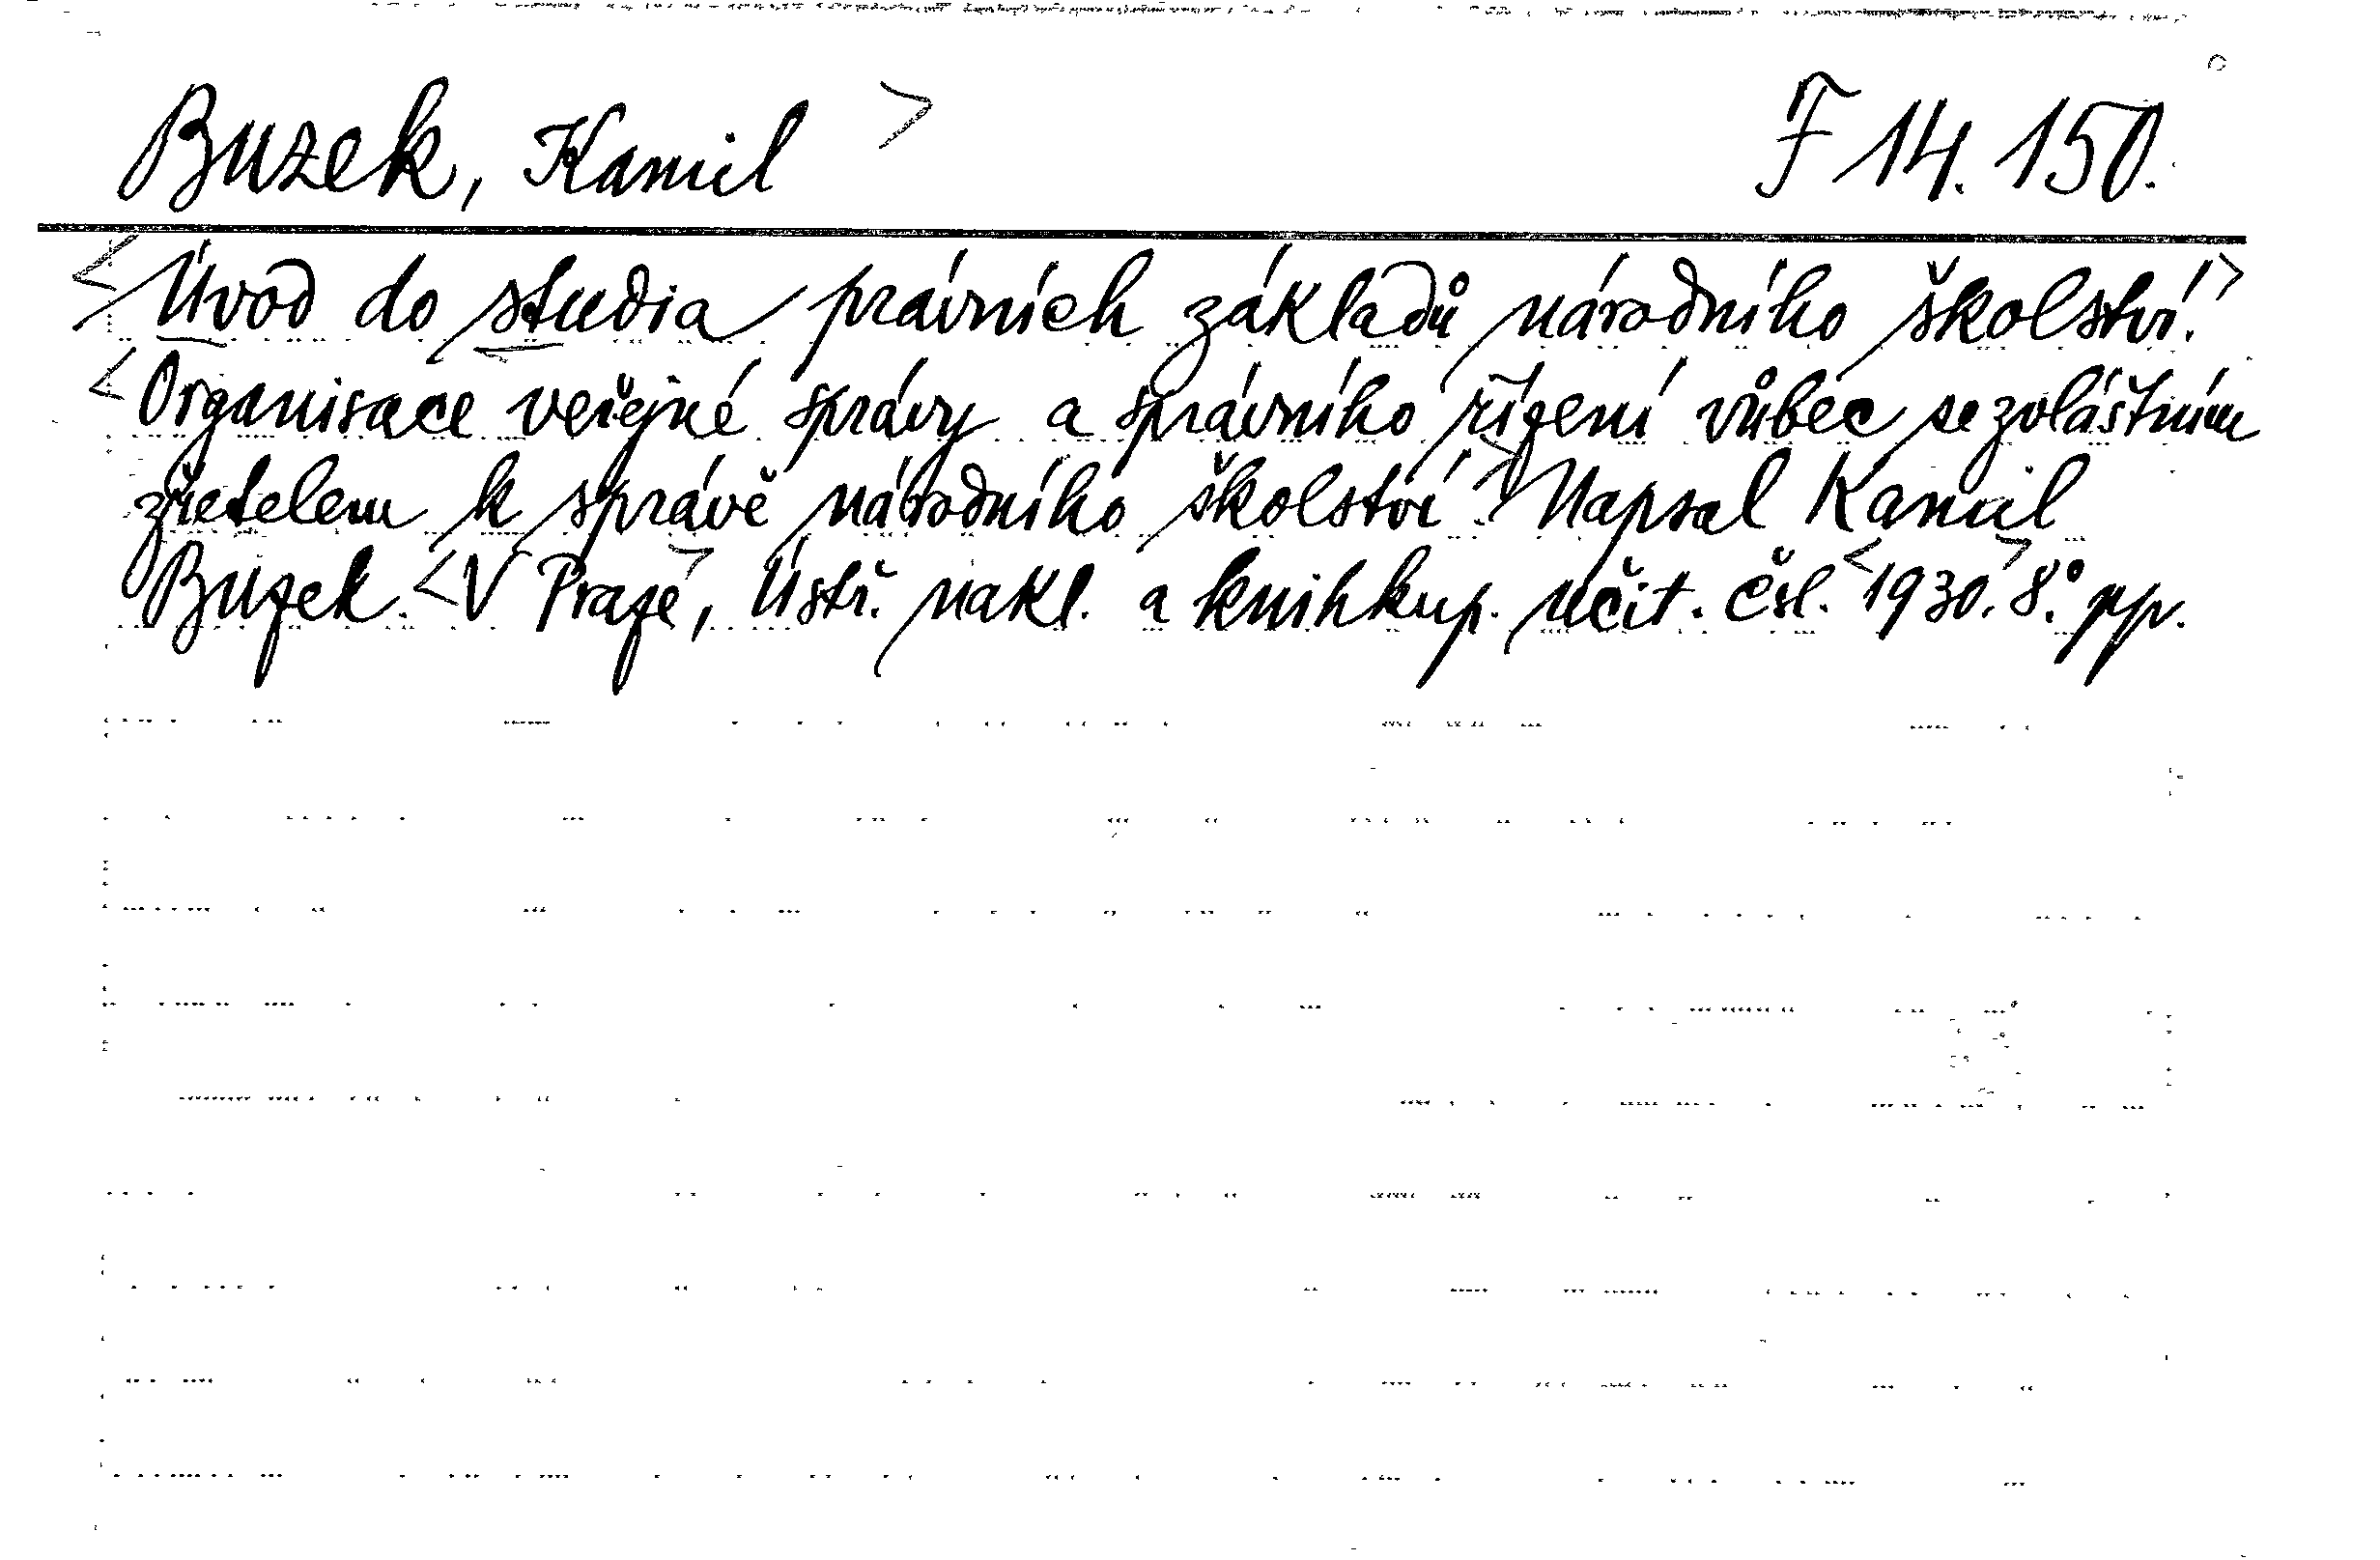 Buzek, Kamil > F 14.150.
<Úvod do studia právních základů národního školství.>
<Organisace veřejné správy a správního řízení vůbec se zvláštním
zřetelem k správě národního školství.> Napsal Kamil
Buzek. <V Praze>, Ústř. nakl. a knihkup. učit. čsl. <1930.> 8.° pp.